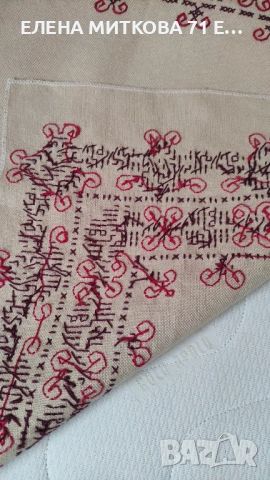 ЕЛЕНА МИТКОВА 71 Е...
BAZAR